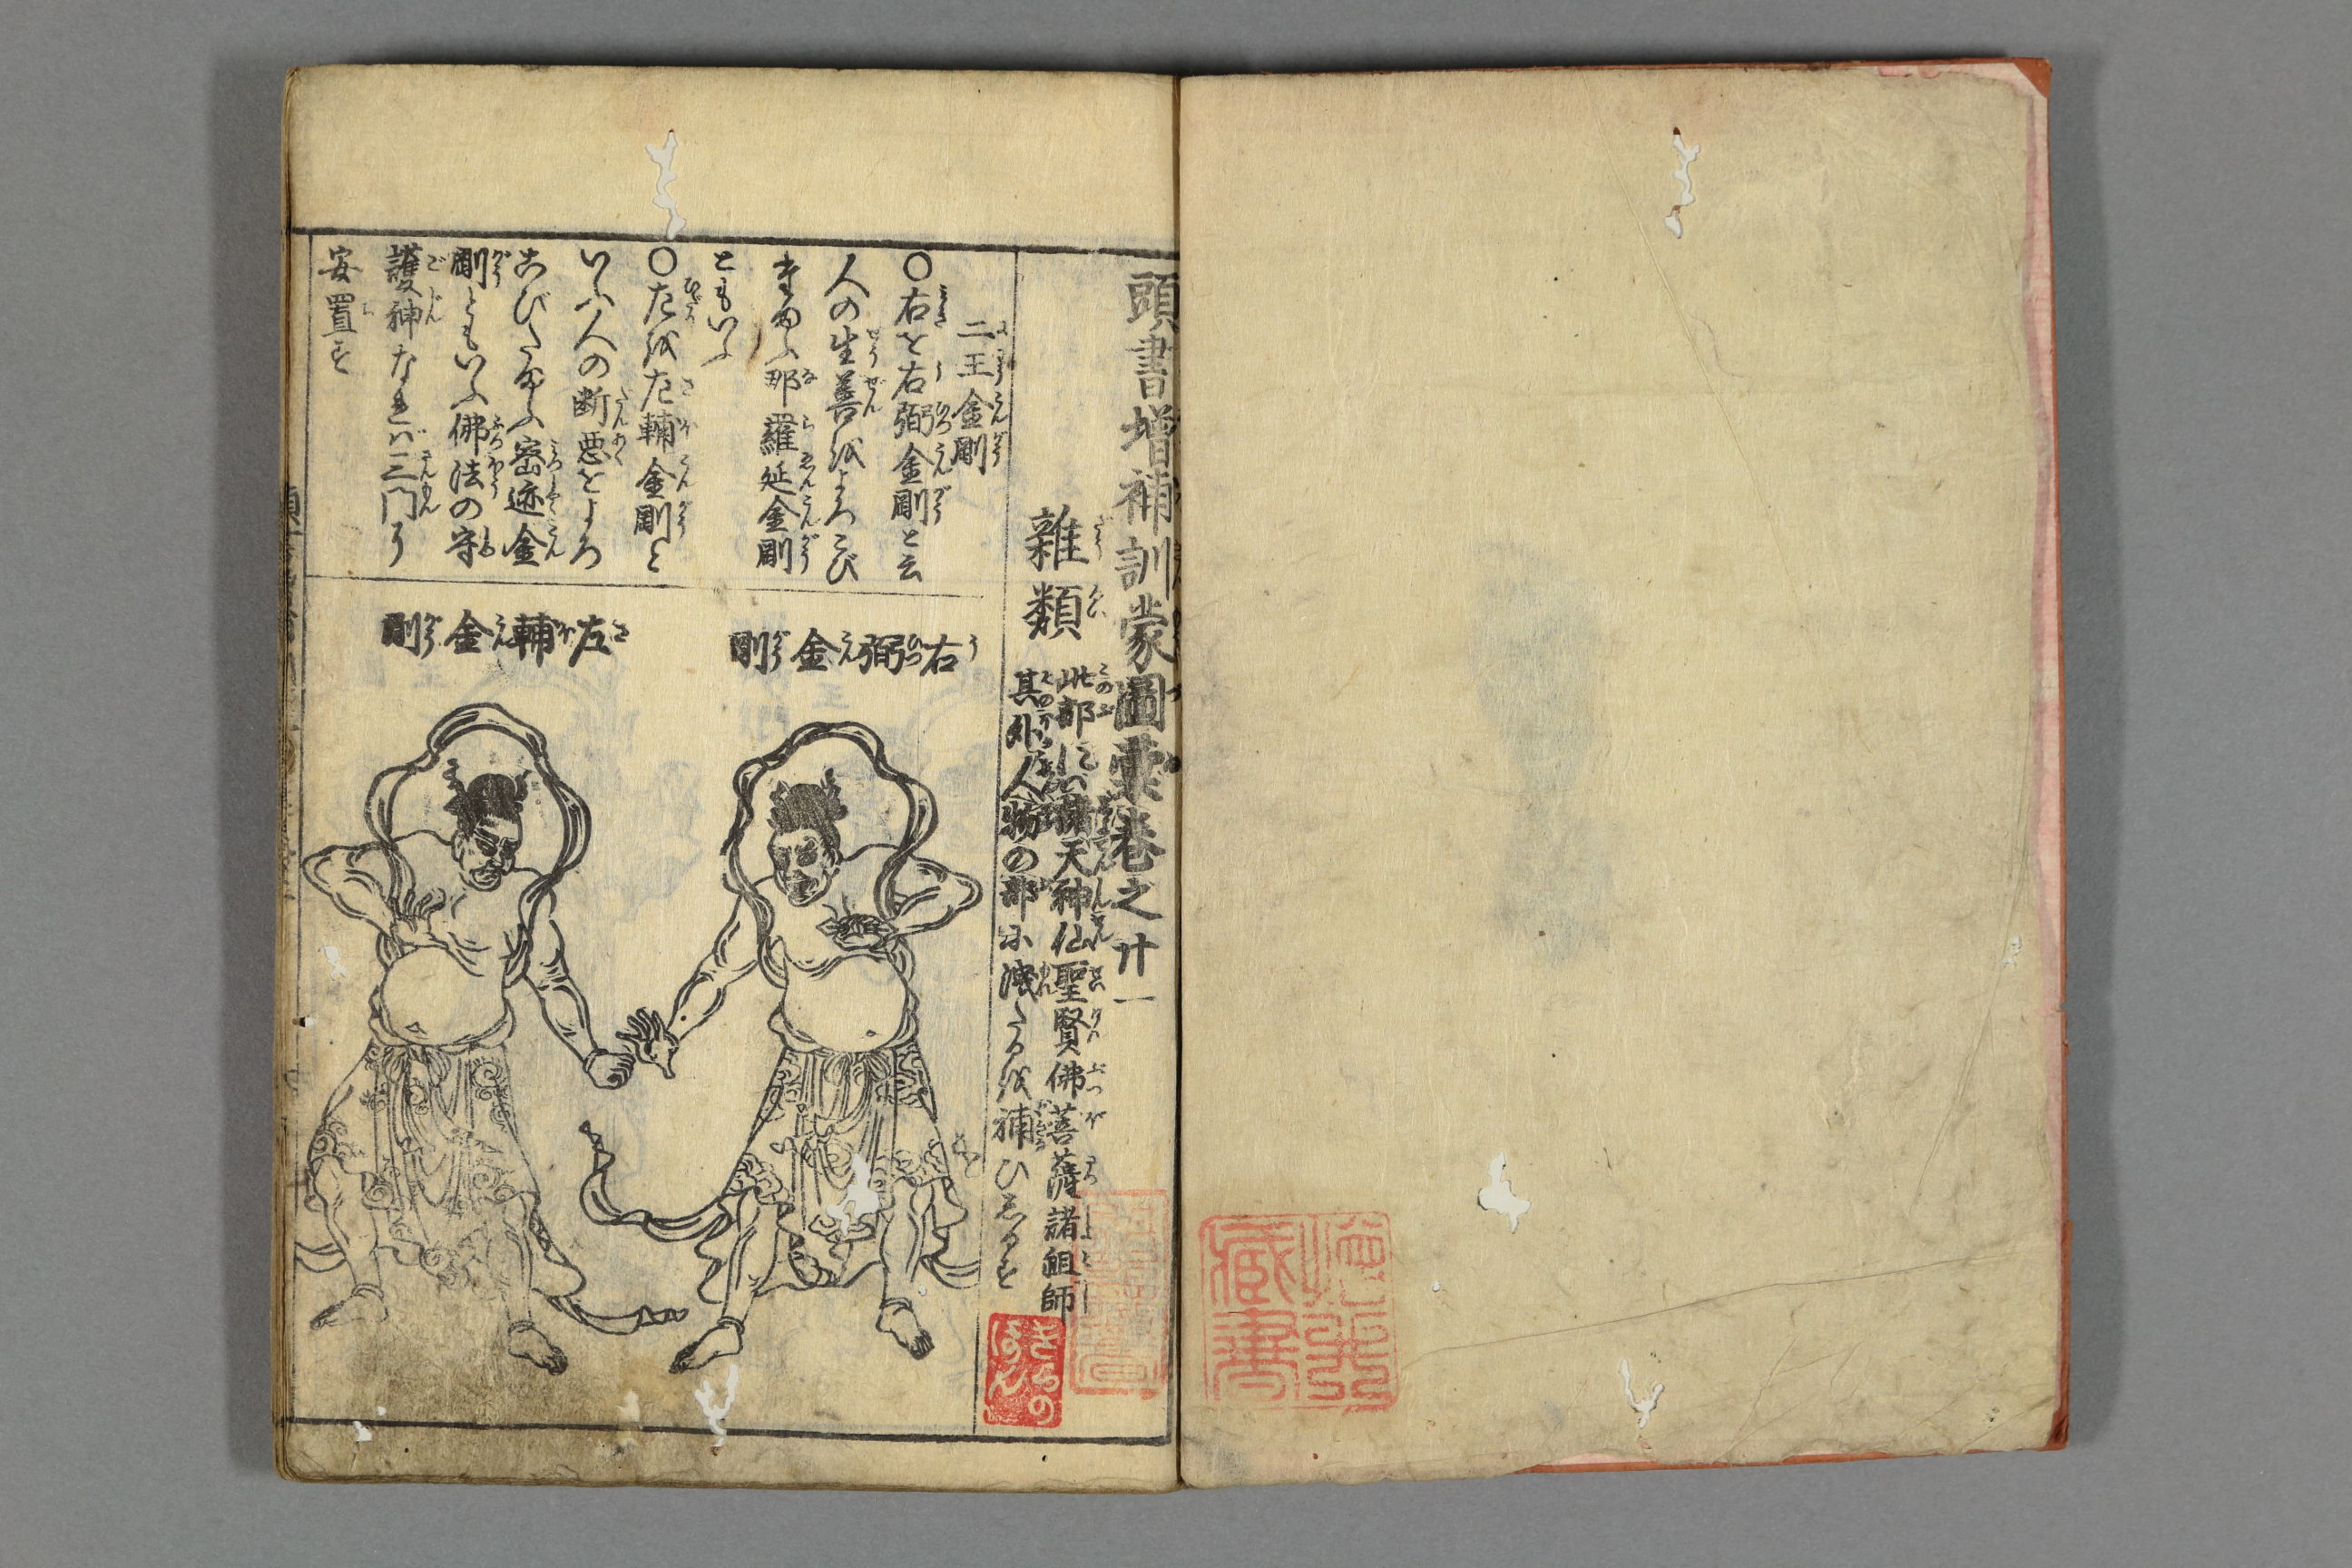 頭書増補訓蒙圖彙巻之廿一
雑類
此部にハ諸天神仙聖賢佛菩薩諸祖師
其外人物の部に洩たるを補ひしるす
二王金剛
〇右を右弼金剛と云
人の生善をよろこび
まもふ那羅延金剛
ともいふ
〇左を左輔金剛と
いふ人の断悪をよろ
こびたまふ密迹金
剛ともいふ佛法の守
護神なれバ三門に
安置す
右弼金剛
左輔金剛
藏書